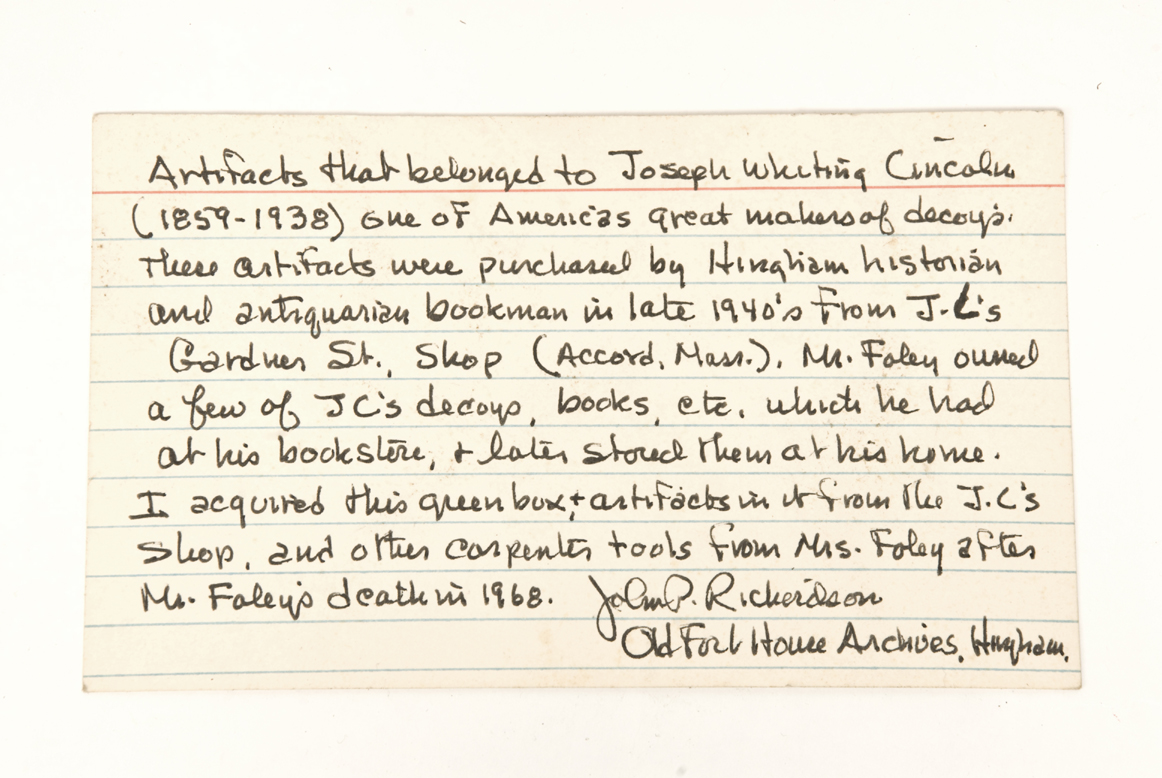 Artifacts that belonged to Joseph Whiting Lincoln
(1859-1938) one of America's great makers of decoys.
These artifacts were purchased by Hingham historian
and antiquarian bookman in late 1940's from J.L's
Gardner St., Shop (Accord, Mass.). Mr. Foley owned
a few of JL's decoys, books, etc. which he had
at his bookstore, & later stored them at his home.
I acquired this green box & artifacts in it from the J.L's
Shop, and other carpenter tools from Mrs. Foley after
Mr. Foley's death in 1968. John P. Richardson
Old Fort House Archives, Hingham.